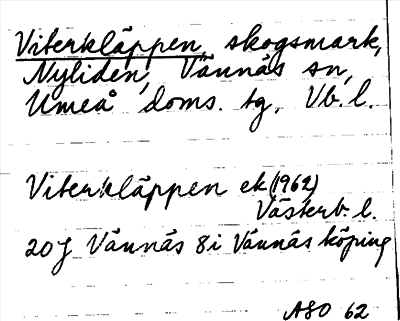 Viterkläppen, skogsmark,
Nyliden, Vännäs sn,
Umeå doms. tg, Vb. l.
Viterkläppen ek (1962)
Västerb. l.
20J Vännäs 8i Vännäs köping
ASO 62